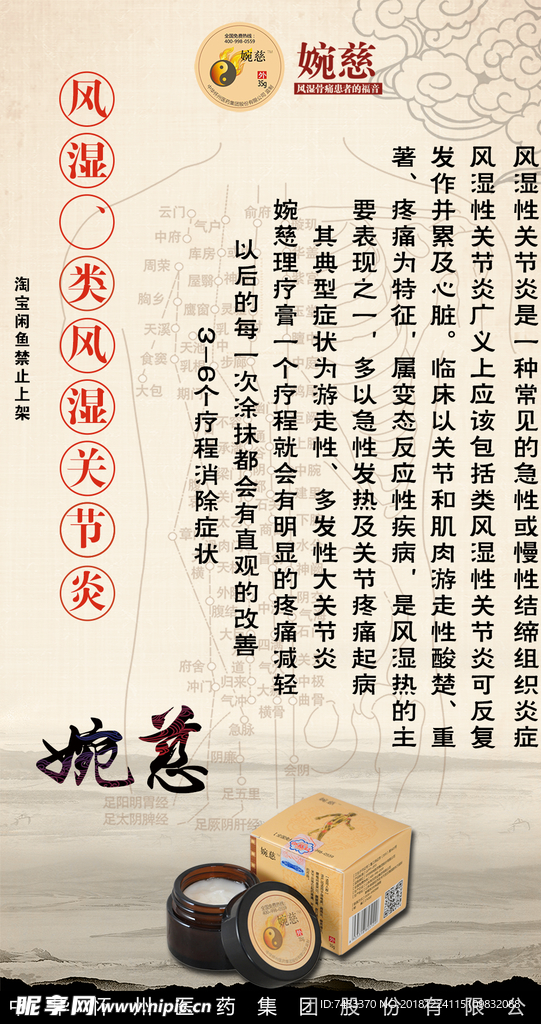 全国免费热线：
400-998-0559
婉慈
外
35g
婉慈
风湿骨痛患者的福音
风湿、类风湿关节炎
淘宝闲鱼禁止上架
风湿性关节炎是一种常见的急性或慢性结缔组织炎症
风湿性关节炎广义上应该包括类风湿性关节炎可反复
发作并累及心脏。临床以关节和肌肉游走性酸楚、重
著、疼痛为特征，属变态反应性疾病，是风湿热的主
要表现之一，多以急性发热及关节疼痛起病
其典型症状为游走性、多发性大关节炎
婉慈理疗膏一个疗程就会有明显的疼痛减轻
以后的每一次涂抹都会有直观的改善
3-6个疗程消除症状
云门
中府
气户
俞府
周荣
库房
胸乡
屋翳
膺窗
天溪
天池
食窦
大包
步廊
中脘
建里
府舍
冲门
归来
气冲
急脉
横骨
曲骨
中极
阴廉
会阴
足五里
足阳明胃经
足太阴脾经
足厥阴肝经
婉慈
婉慈
婉慈
昵享网 www.nipic.cn
医药集团股份有限公